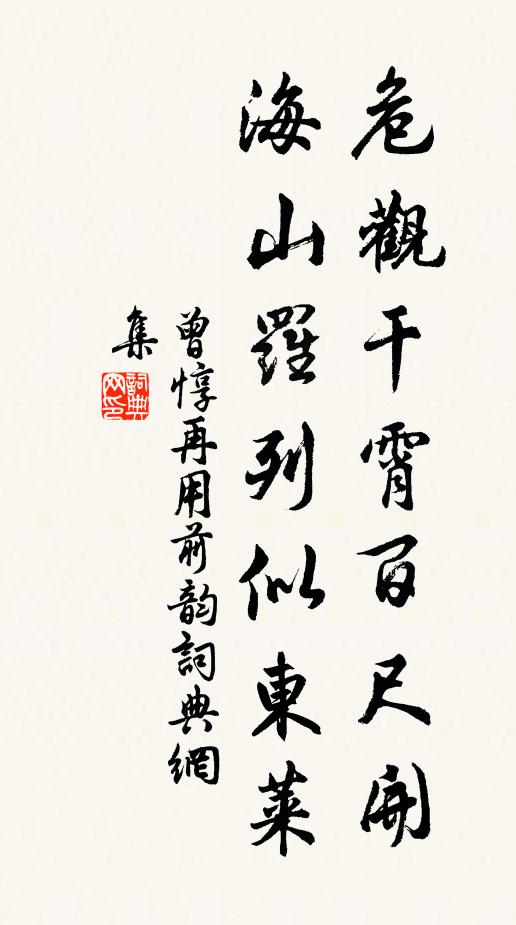 危觀干霄百尺開
海山羅列似東萊
曾惇再用前韵詞典網
集
詞典网印